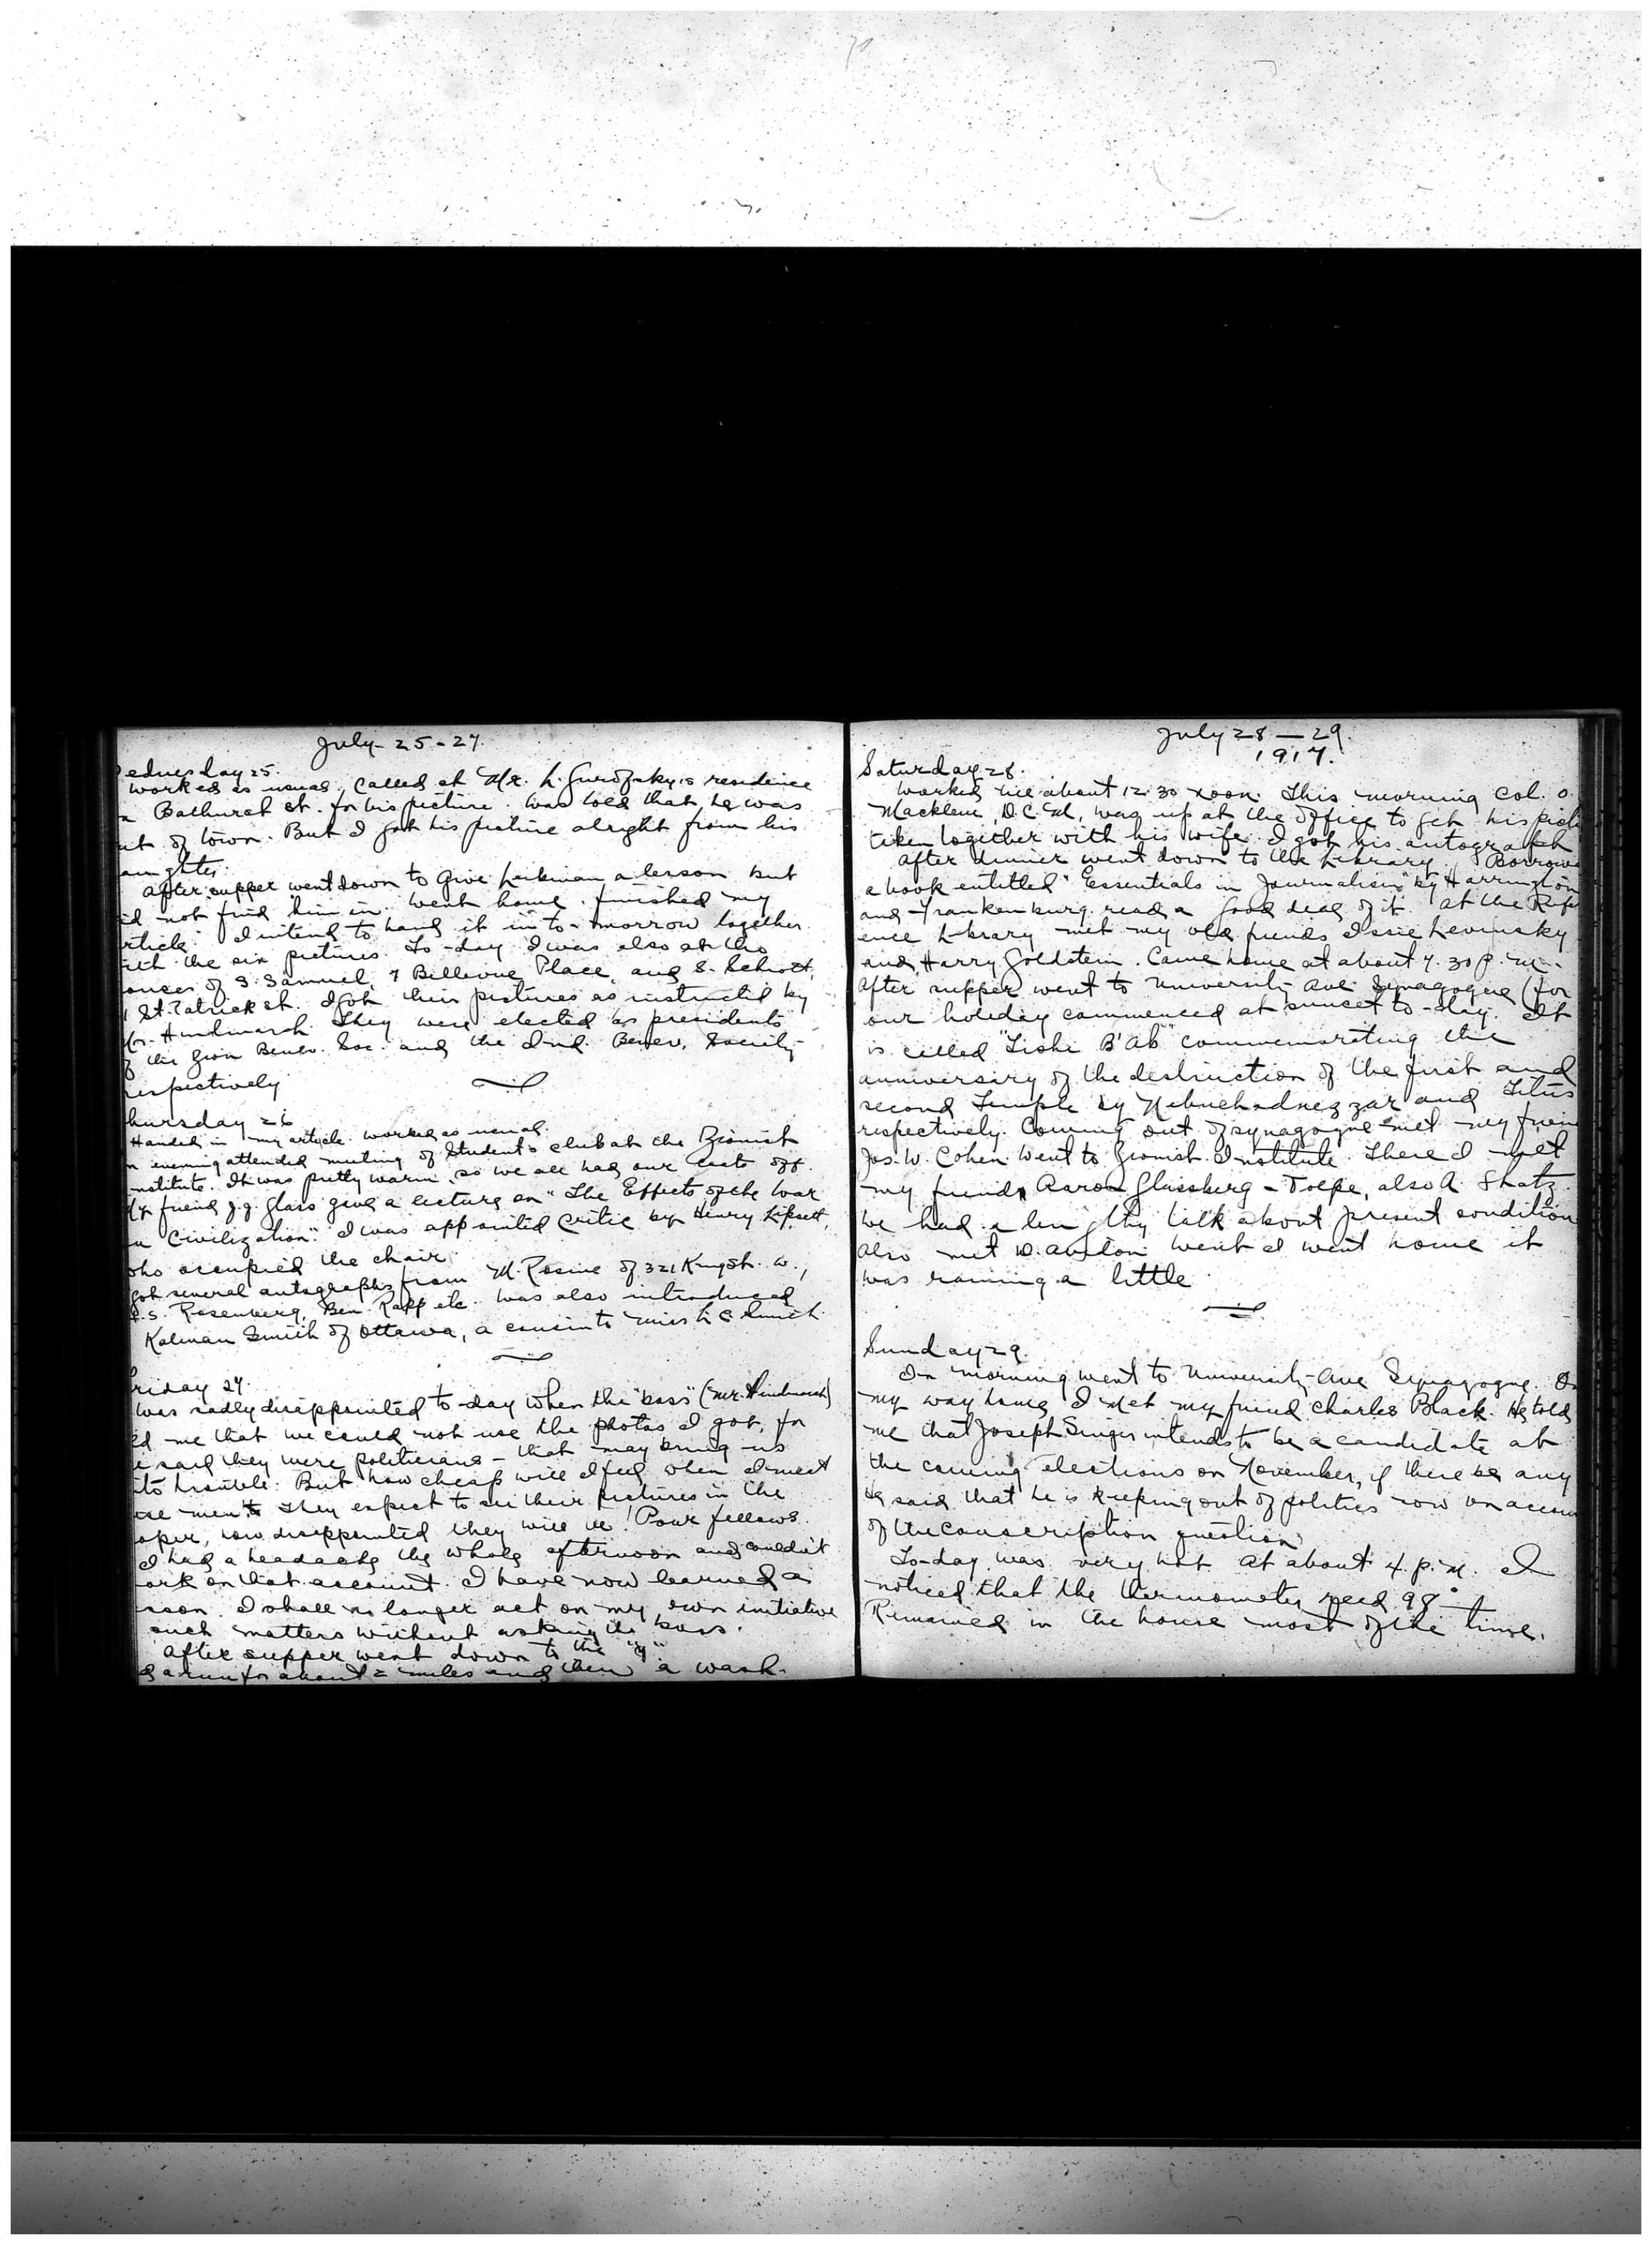 July 25-27.
ednesday 25.
Worked as usual, called at Mr. L. Gurofsky's residence
n Bathurst st. for his picture. Was told that he was
ut of town. But I got his picture alright from his
aughter.
After supper went down to give a lesson but
id not find him in. Went home, finished my
rticle. I intend to hand it in to-morrow together
ith the six pictures. To-day I was also at the
ouses of S. Samuel, 7 Bellevue Place, and S. Schrott,
St. Patrick st. I got their pictures as instructed by
Mr. Hindmarsh. They were elected as presidents
f the Zion Benev. Soc. and the Ind. Benev. Society
respectively
hursday 26
Handed in my article. Worked as usual.
n evening attended meeting of Student's club at the Zionist
nstitute. It was pretty warm, so we all had our coats off.
My friend J.G. Glass gave a lecture on "The Effects of the War
n Civilization." I was appointed critic by Henry Lipsett,
who occupied the chair.
got several autographs from M. Rosine of 321 King st. w.,
.S. Rosenberg, Ben. Rapp etc. Was also introduced
Kalman Smith of Ottawa, a cousin to Miss
riday 27.
Was sadly disappointed to-day when the "boss" (Mr. Hindmarsh)
ld me that we could not use the photos I got, for
e said they were politicians - that may bring us
to trouble. But how cheap will I feel when I meet
ose men. They expect to see their pictures in the
aper, how disappointed they will be! Poor fellows.
I had a headache the whole afternoon and couldn't
ork on that account. I have now learned a
sson. I shall no longer act on my own initiative
such matters without asking the boss.
After supper went down to the "Y".
d a run for about 2 miles and then a wash.
July 28 - 29.
1917.
Saturday 28.
Worked till about 12.30 noon. This morning Col. O.
Macklem, D.C.M., was up at the office to get his pict
taken together with his wife. I got his autograph
After dinner went down to the Library. Borrowed
a book entitled "Essentials in Journalism" by Harrington
and Frankenburg. read a good deal of it. At the Refer
ence Library met my old friends Issie Levinsky
and Harry Goldstein. Came home at about 7.30 p.m.
After supper went to University Ave. Synagogue (for
our holiday commenced at sunset to-day. It
is called "Tishi B'Ab" commemorating the
anniversary of the destruction of the first and
second Temple by Nebuchadnezzar and Titus
respectively. Coming out of synagogue met my friend
Jos. W. Cohen went to Zionist Institute. There I met
my friends Aaron Glassberg - Tolpe, also A. Shatz.
We had a lengthy talk about present condition
Also met D. went I went home it
was raining a little.
Sunday 29.
In morning went to University Ave Synagogue. On
my way home I met my friend Charles Black. He told
me that Joseph Singer intends to be a candidate at
the coming elections on November, if there be any
He said that he is keeping out of politics now on accoun
of the conscription question.
To-day was very hot. At about 4 p.m. I
noticed that the thermometer reed 98°
Remained in the house most of the time.